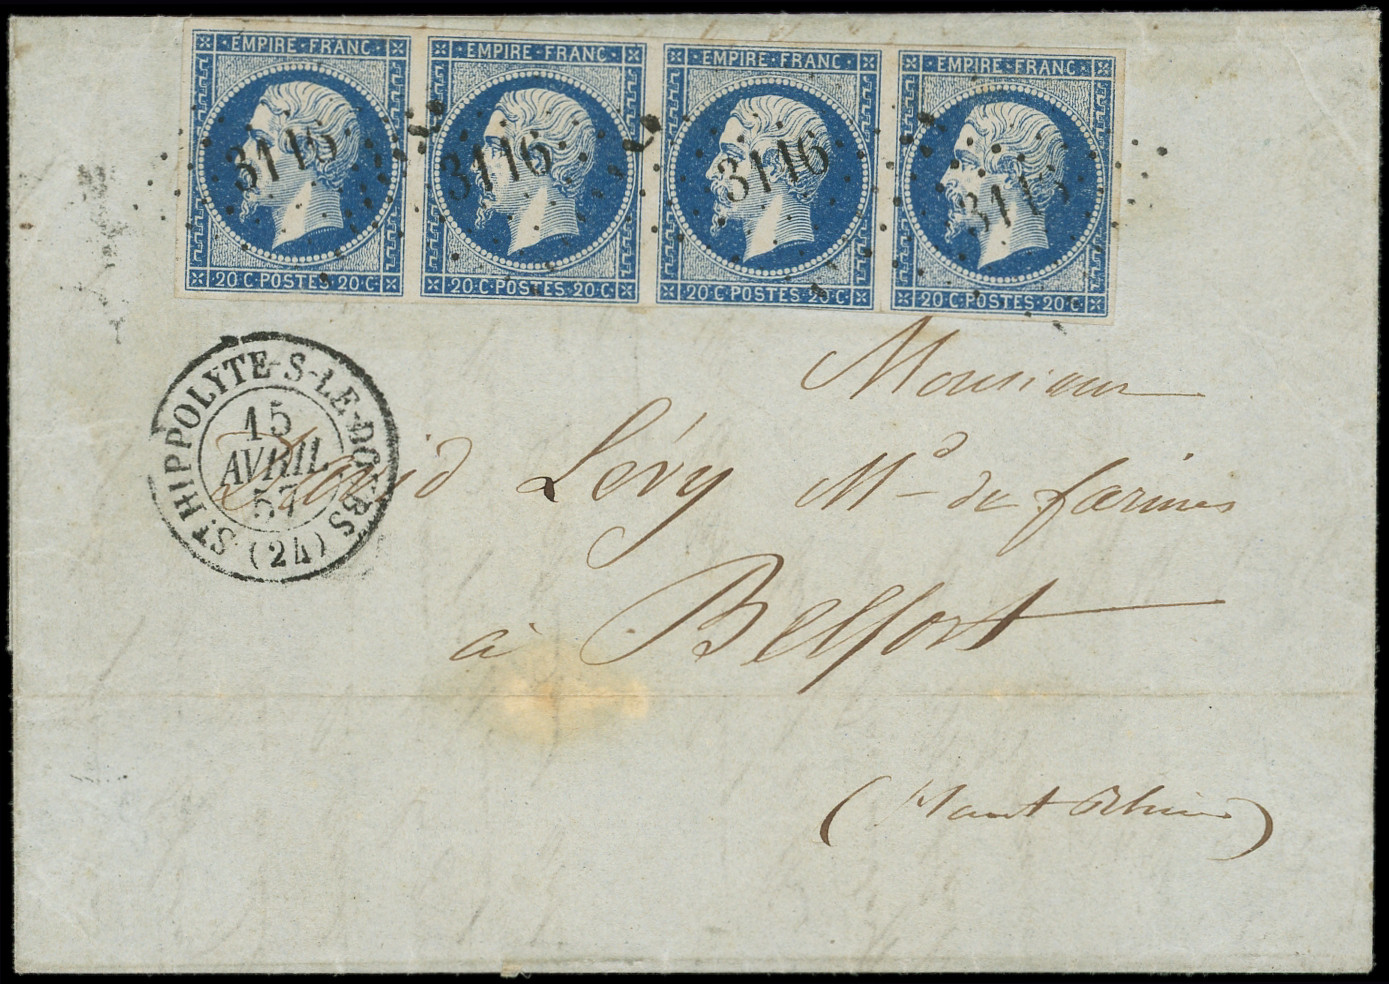 EMPIRE FRANC EMPIRE FRANC EMPIRE FRANC EMPIRE FRANC
3116 3116 3116 311
20 C POSTES 20 C 20 C POSTES 20 C 20 C POSTES 20 C 20 C POSTES 20 C
ST HIPPOLYTE-S-LE-DOUBS
15
AVRIL
57
(24)
Monsieur
David Lévy Md de farines
à Belfort
(Haut Rhin)